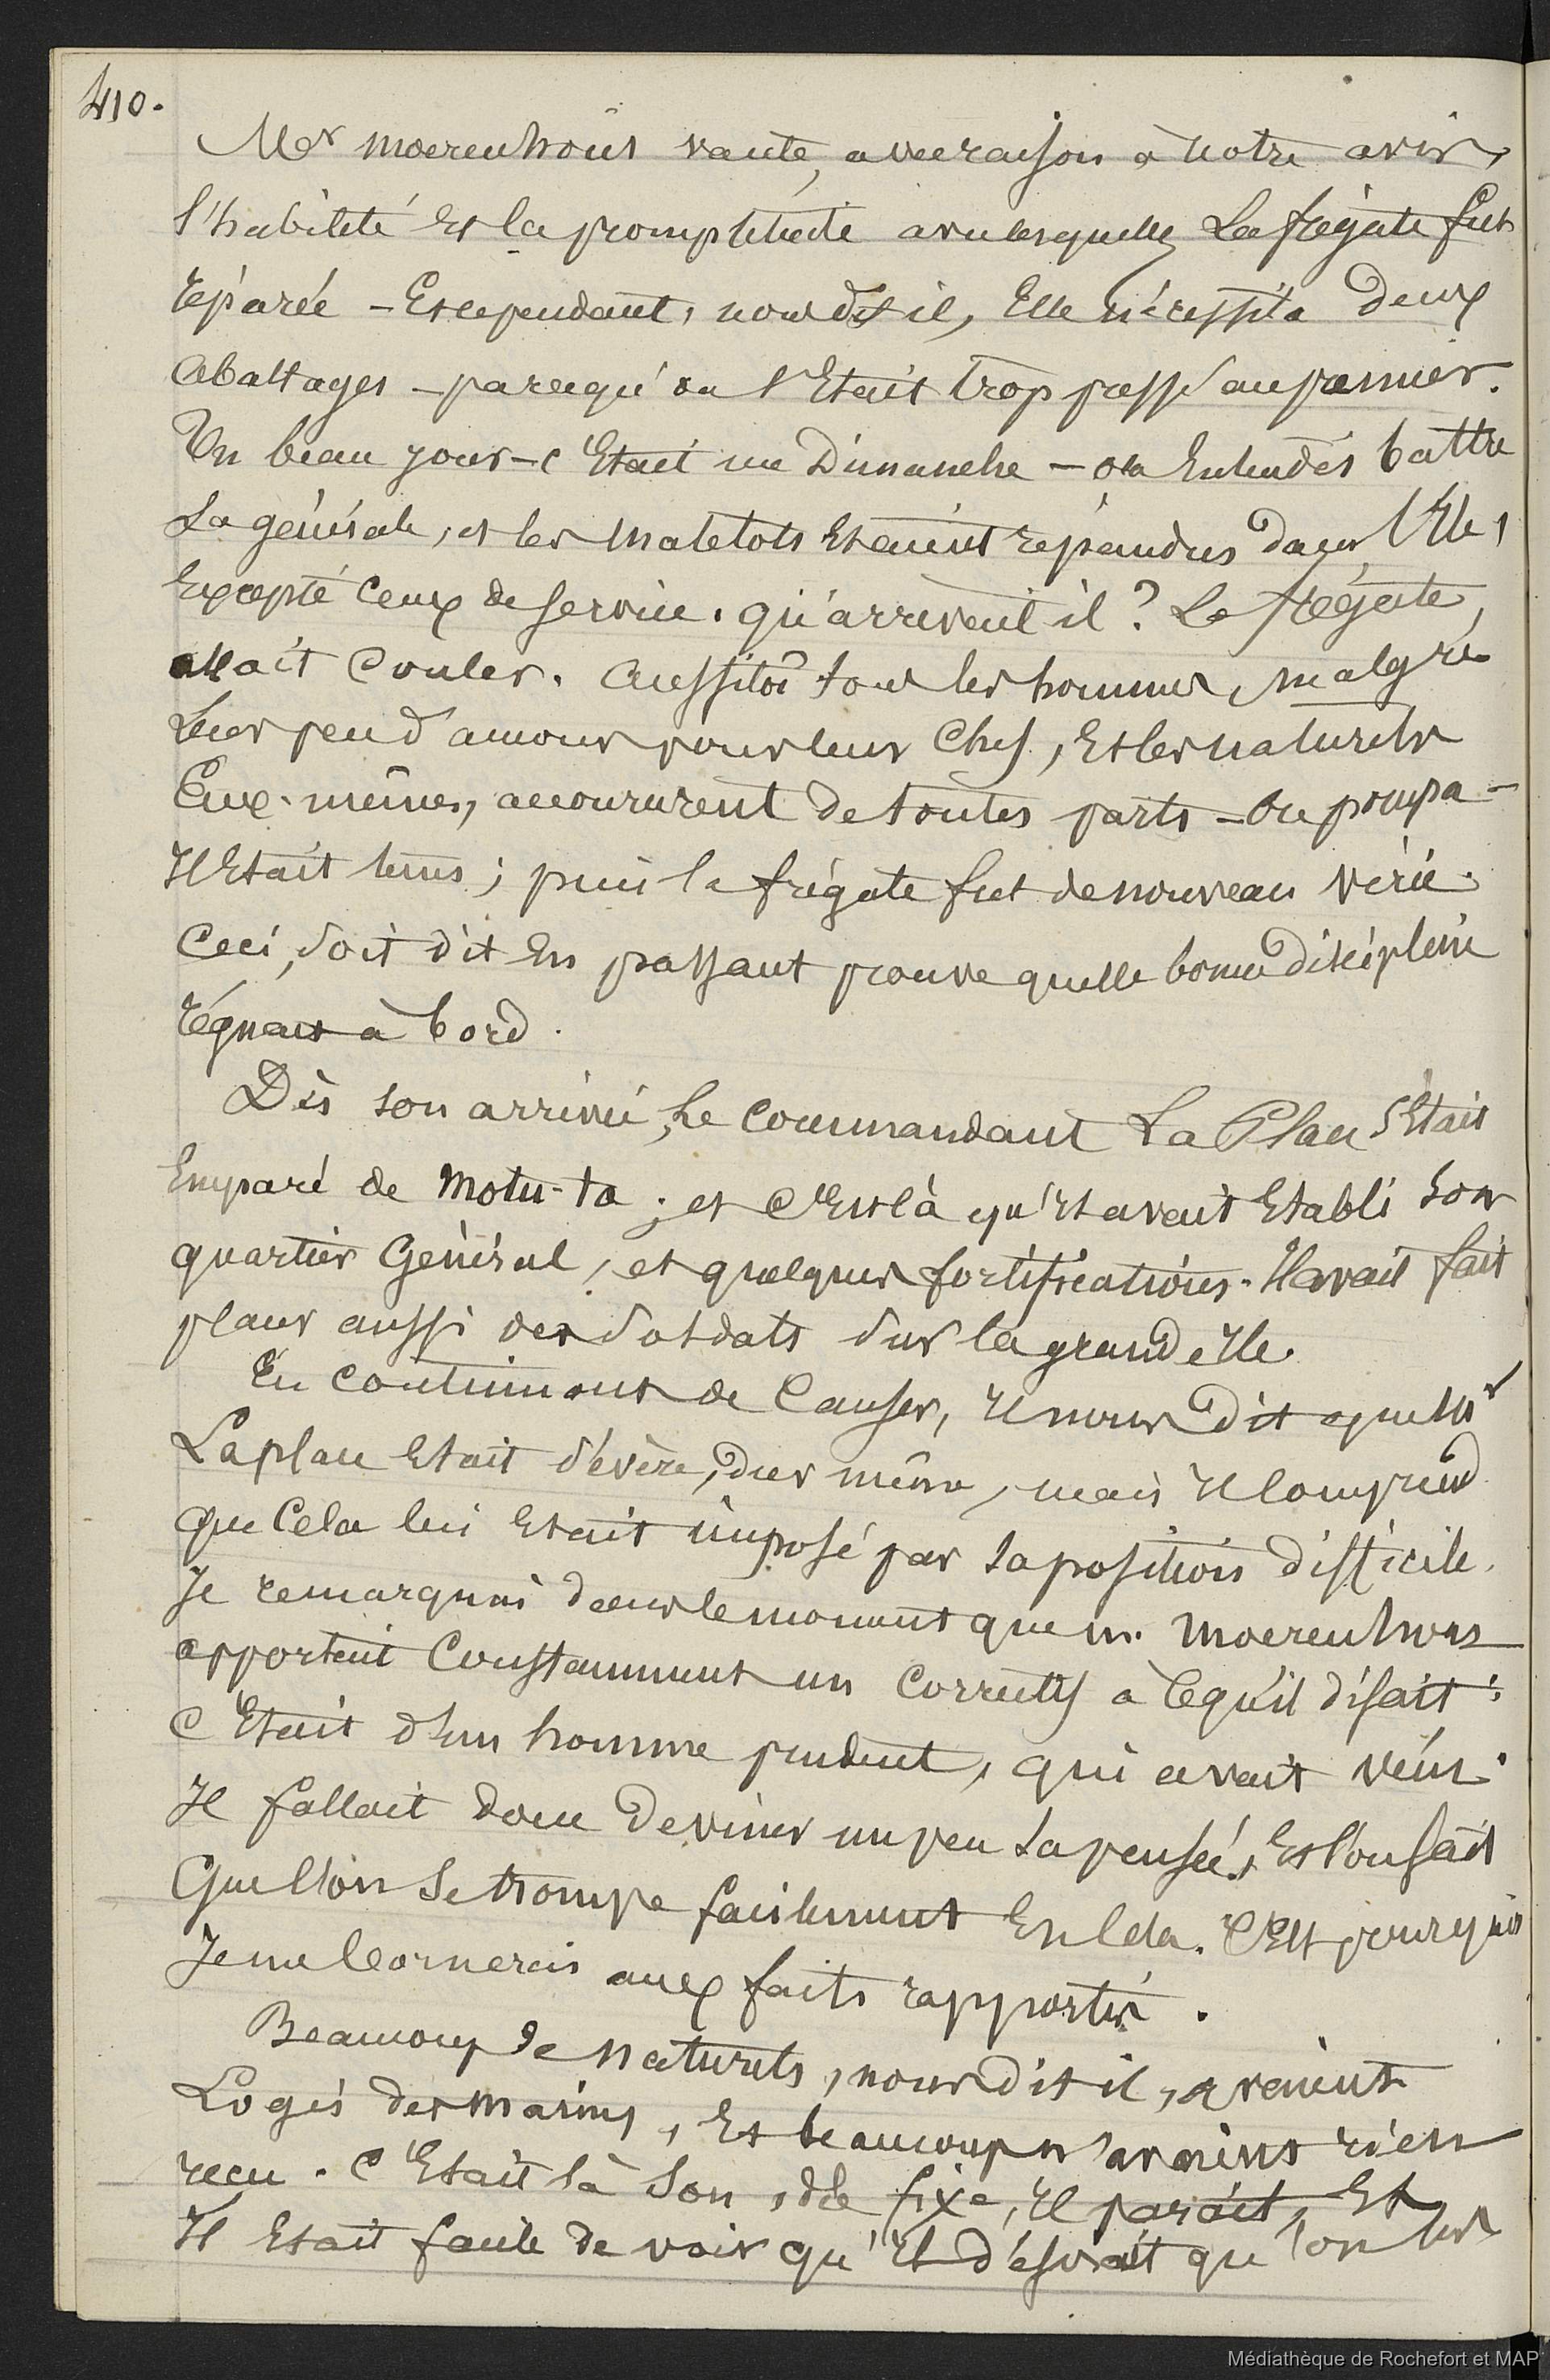 410.
Mr Moerenhous vante, avec raison à notre avis,
l'habileté et la promptitude avec lesquelles La frégate fut
réparée – Et cependant, nous dit il, Elle nécessita deux
abattages – parcequ'on s'était trop pressé au premier.
Un beau jour – c'Etait un Dimanche – on Entendit battre
La générale, et les matelots Etaient répandus dans l'Ile,
Excepté ceux de service. qu'arrivait il ? La frégate,
allait couler. Aussitôt tous les hommes, malgré
Leur peu d'amour pour leur Chef, Et les naturels
Eux-mêmes, accoururent de toutes parts – On pompa –
Il Etait tems ; puis la frégate fut de nouveau virée.
Ceci, soit dit En passant prouve quelle bonne discipline
régnait à bord.
Dès son arrivée, Le Commandant La Place s'Etait
Emparé de Motu-ta ; et c'Est là qu'il avait Etabli son
quartier Général, et quelques fortifications. Il avait fait
placer aussi des soldats sur la grand Ile.
En continuant de Causer, Il nous dit que Mr
Laplace Etait sévère, dur même, mais Il comprend
que Cela lui Etait imposé par sa position difficile.
Je remarquai dans le moment que m. Moerenhous
apportait Constamment un Correctif à ce qu'il disait :
c'Etait d'un homme prudent, qui avait vécu.
Il fallait donc Deviner un peu sa pensée, Et l'on sait
Que l'on se trompe facilement En cela. C'Est pourquoi
Je me bornerai aux faits rapportés.
Beaucoup de naturels, nous dit il, avaient
Logés des marins, Et beaucoup n'avaient rien
reçu. C'Etait là son idée fixe, Il paraît, Et
Il Etait facile de voir qu'Il désirait que l'on les
Médiathèque de Rochefort et MAP